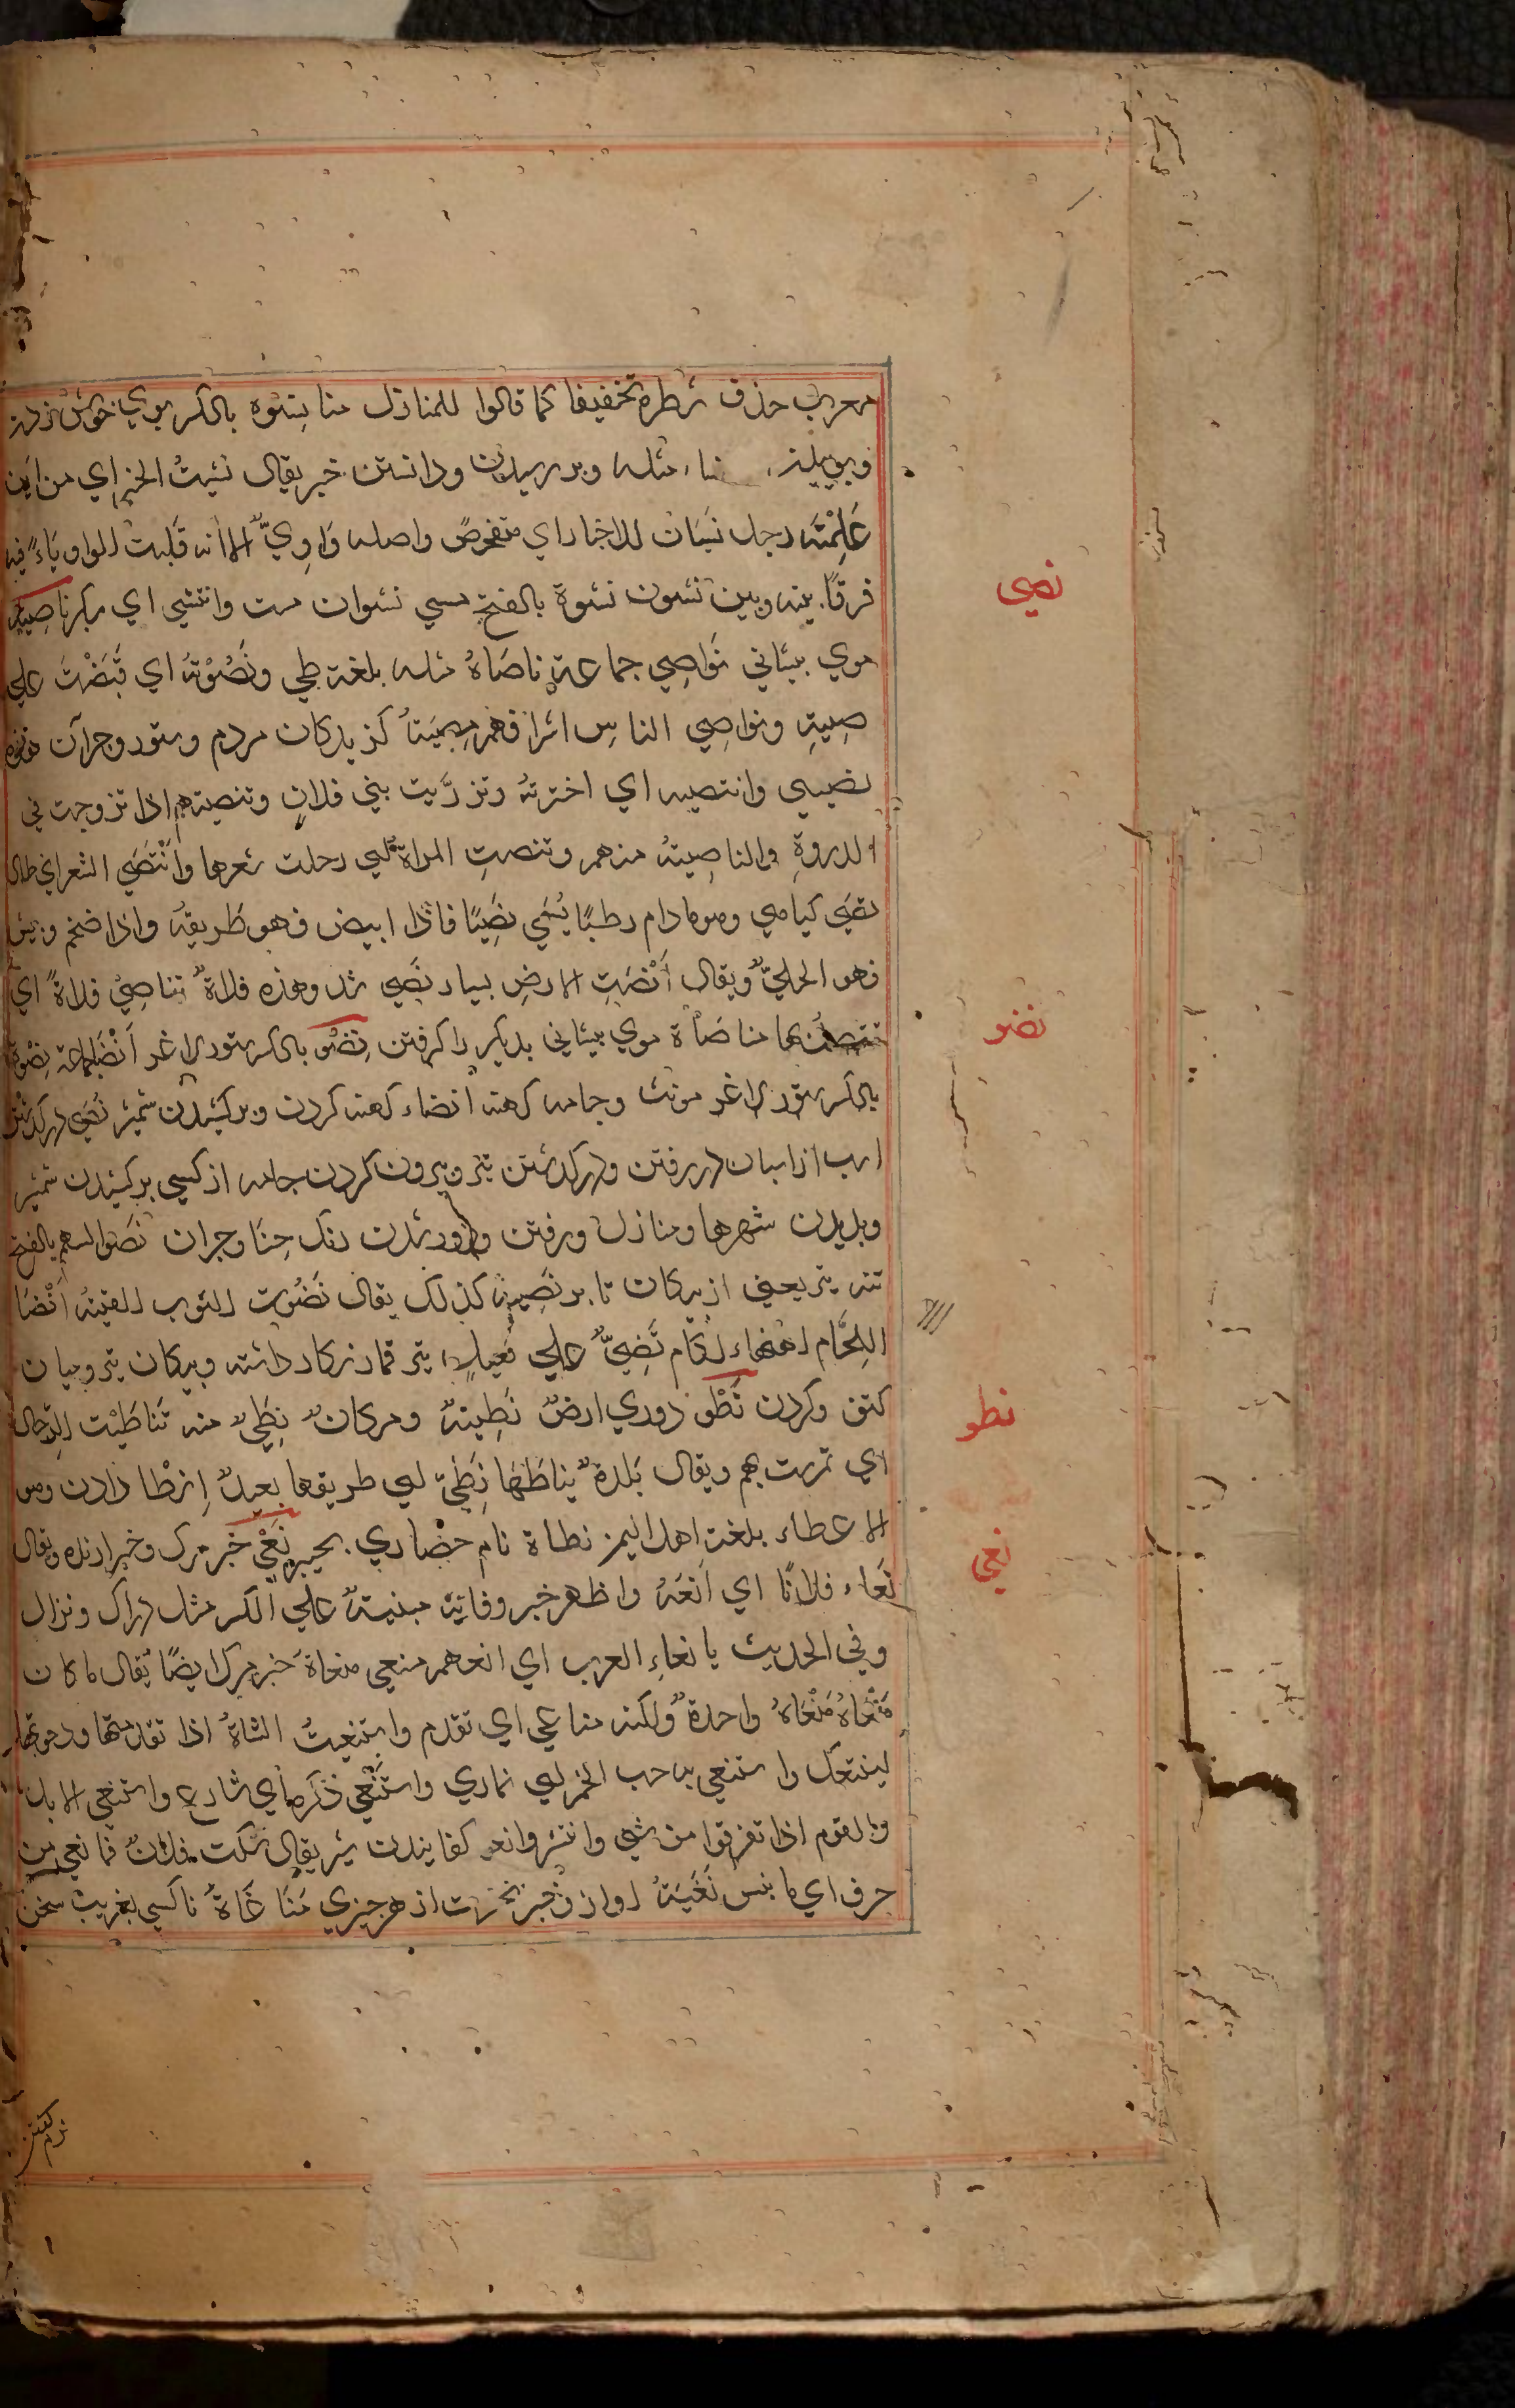 معرب حذف شطره تخفيفا كما قالوا للمنازل منا نشوه بالكسر بوي خوش
مثله وبو رسيدن ودانستن خبر يقال نشيت الخبر اي من اين
عَلِمْتَه رجل نشيان للاخبار اي متفحص واصله وَاوِيٌّ الا انه قلبت الواو يَاءً فيه
فرقًا بينه وبين نشوت نشوة بالفتح مستي نشوان مست وانتشي اي سكر ناصية
موي پيشاني نَواصِي جماعة ناصَاة مثله بلغة طي ونَصَوْتُه اي قَبَضْتُ علي
صِيته ونواصي الناس اشرافهم كزيدكان مردم وستور وجز آن
نصيى وانتصيه اي اخترته وتذرَّيت بني فلان وتنصيتهم اذا تزوجت في
الذروةِ والناصِية منهم وتنصت المراة اي رجلت شعرها وانْتَصَي الشعر اي طال
نَصَي كياهي وهو مادام رطبًا يُسَمَّي نَصِيًا فاذا ابيض فهو طَريقَة واذا ضخم ويبس
فهو الحليٌّ ويقال أنْصَتِ الارض بسيار نَصِي شد وهذه فلاةٌ تناصِيْ فلاةً اي
تتصل بها مناصَاة موي پيشاني يديكر را كرفتن نِضْو بالكسر ستور لاغر انْضاء جماعة نِضْوة
بالكسر ستور لاغر مونث وجامه كهنه انضاء كهنه كردن وبركشيدن شمشير نَضَي دركذشتن
اسب از اسبان در رفتن ودركذشتن تير وبيرون كردن جامه از كسي بركشيدن شمشير
وبريدن شهرها ومنازل ورفتن ودور شدن رنك حِنّا وجزان نَضَوا السهم بالفتح
تنه تير يعني از پيكان تا پر نَضِيه كذلك يقال نَضَوت الثوب القيته انْضَا
اللِجَام نَضِيٌّ علي فعيل تير قمار نكار داشته وپيكان تير وميان
كتف وكردن نَطْو دوري ارضٌ نَطِيةٌ ومكانٌ نِطِيٌ منه تَناطَيْت الرجال
اي تمرست بهم ويقال بَلدةٌ يناطَهَا نَطِيّ اي طريقها بعيدٌ اِنطا دادن وهو
الاعطاء بلغة اهل اليمن نطاة نام حصاري بخيبر نَعْي خبر مرك وخبر دادن ويقال
نَعاء فلانًا اي انعَهُ واظهر خبر وفاته مبنيةٌ علي الكسر مثل دراك ونزال
وفي الحديث يا نعاءِ العرب اي انعهم منعي منعاة خبر مرك ايضًا يُقال ما كان
مَنْعَاهُ مَنْعَاةً واحدةً ولكنه مناعي اي تقدم واستنعيتُ الشاةَ اذا تقدمتها ودعوتها
لتتبعك واستنعي به حب الخمر اي تمادي واستَنْعي ذكره اي شاع واستنعي الابل
والقوم اذا تفرقوا من شي وانتشروا نغو يقال سكت فلانٌ فما نغي من
حرف اي ما نبس نَغْيَةٌ اواز وخبر نخست از هر چيزي مُنَاغَاةٌ ناكسي بغريب سخن
نصي
نضو
نطو
نعي
نرم كفتن